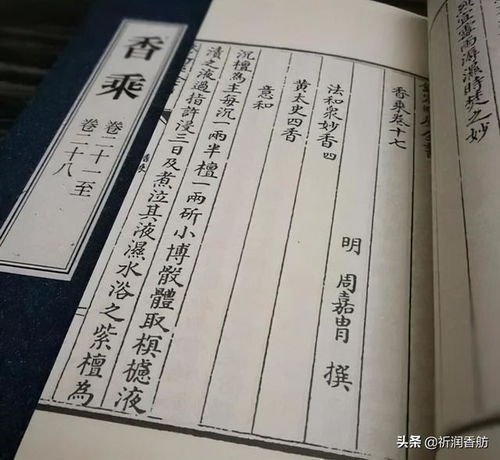 香乘
卷二十一至
卷二十八
宜霉雨溽濕時焚之妙
香乘卷十七
明 周嘉胄 撰
法和衆妙香四
黃太史四香
意和
沉檀為主每沉一兩半檀一兩斫小博骰體取榠樝液
漬之液過指許浸三日及煮泣其液濕水浴之紫檀為
头条 @祈润香舫